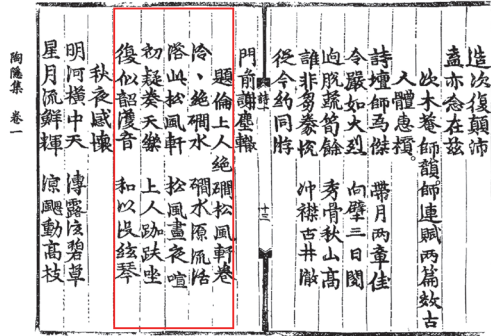 造次復顛沛
盍亦念在茲
次木菴師韻。師連賦兩篇效古
人體惠
詩壇師爲傑 帶月兩章佳
令嚴如火烈 向壁三日閱
逈脫蔬筍餘 秀骨秋山高
誰非芻豢悅 冲襟古井澈
從今約同
十三
門前謝塵轍
題倫上人絕磵松風軒卷
泠〻絕磵水 磵水源流活
落此松風軒 松風晝夜喧
初疑奏天樂 上人跏趺坐
復似韶濩音 和以長絃琴
秋夜感懷
明河橫中天 漙露泫碧草
星月流鮮輝 凉颸動高枝
陶隱集 卷一